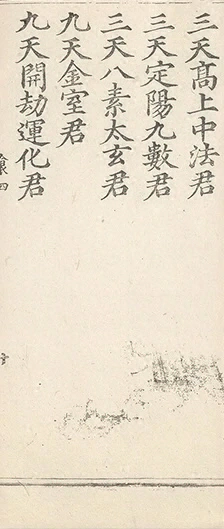 三天髙上中法君
三天定陽九數君
三天八素太玄君
九天金室君
九天開劫運化君